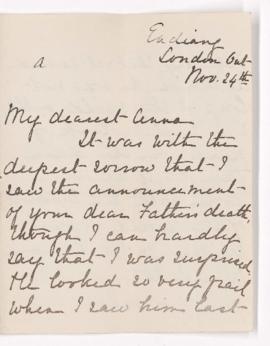 Eadiang
London Ont
Nov. 24th
a
My dearest Anna
It was with the
deepest sorrow that I
saw the announcement
of your dear Father's death,
though I can hardly
say that I was surprised.
He looked so very frail
when I saw him last